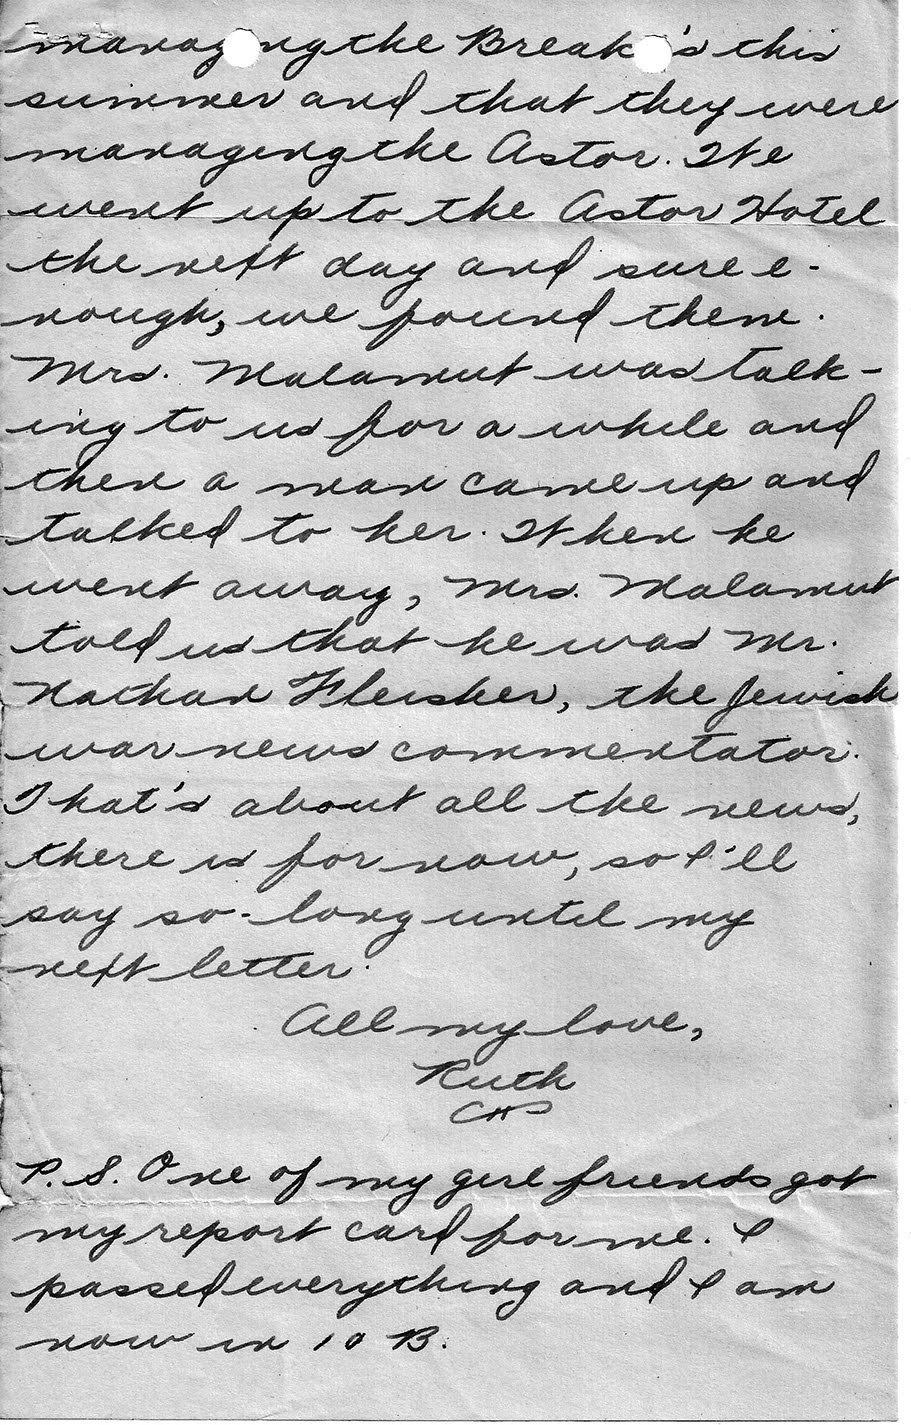 managing the Break 's this
summer and that they were
managing the Astor. We
went up to the Astor Hotel
the next day and sure e-
nough, we found them.
Mrs. Malamut was talk-
ing to us for a while and
then a man came up and
talked to her. When he
went away, Mrs. Malamut
told us that he was Mr.
Nathan Fleisher, the Jewish
war news commentator.
That's about all the news,
there is for now, so I'll
say so-long until my
next letter.
All my love,
Ruth
P.S. One of my girl friends got
my report card for me. I
passed everything and I am
now in 10 B.